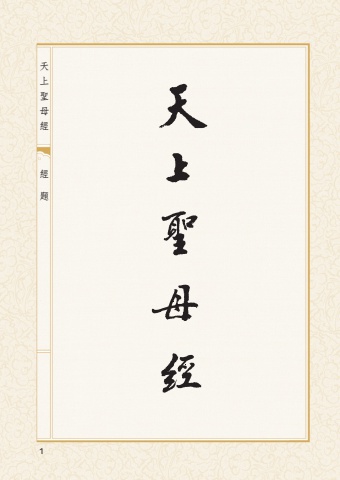 天上聖母經
天上聖母經
經題
1